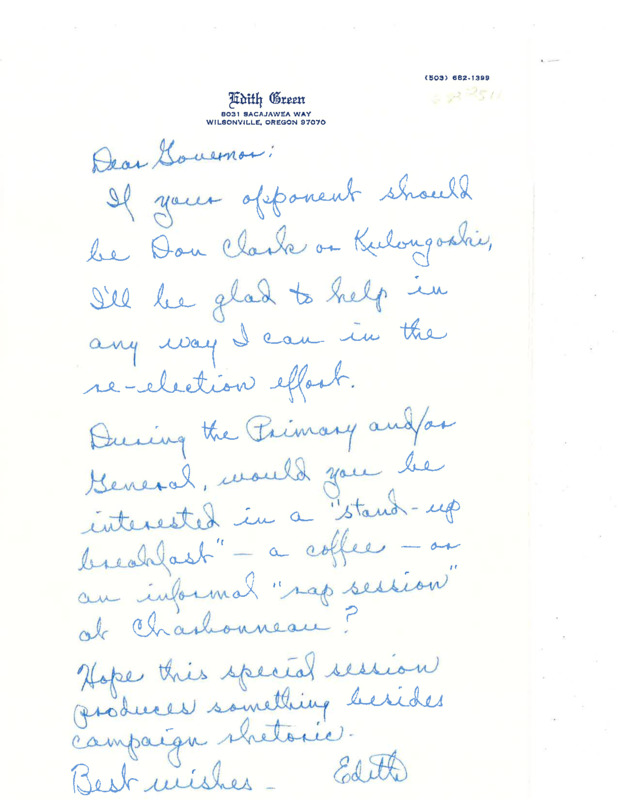 (503) 682-1399
Edith Green
8031 SACAJAWEA WAY
WILSONVILLE, OREGON 97070
Dear Governor:
If your opponent should
be Don Clark or Kulongoski,
I'll be glad to help in
any way I can in the
re-election effort.
During the Primary and/or
General, would you be
interested in a "stand-up
breakfast" – a coffee – or
an informal "rap session"
at Charbonneau?
Hope this special session
produces something besides
campaign rhetoric.
Best wishes – Edith